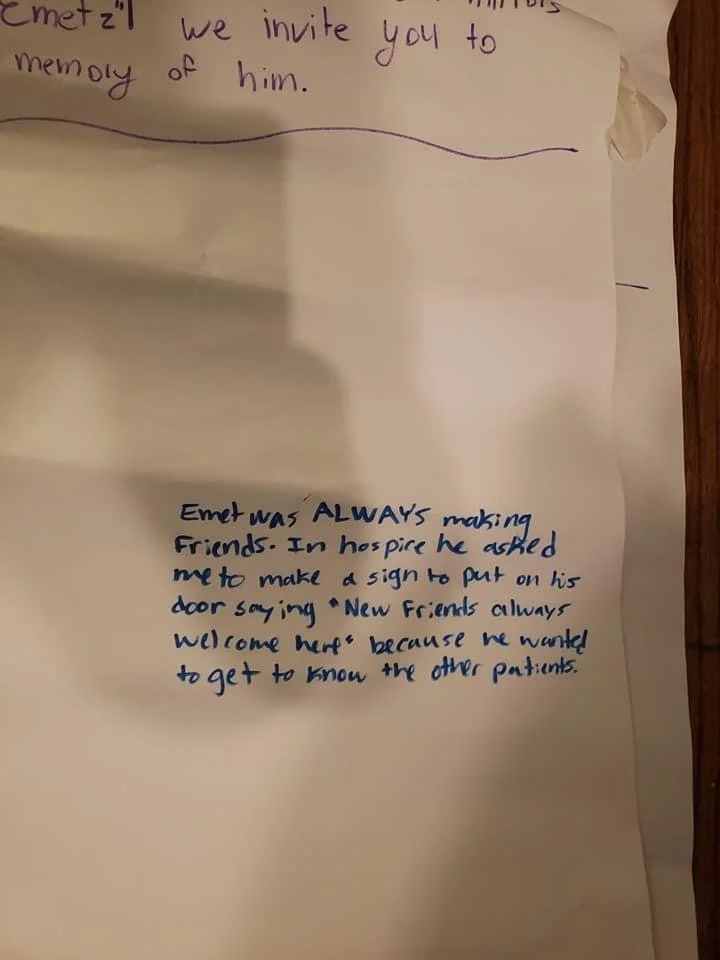 Emet z"l we invite you to
memory of him.
Emet was ALWAYS making
Friends. In hospice he asked
me to make a sign to put on his
door saying "New Friends always
welcome here" because he wanted
to get to know the other patients.